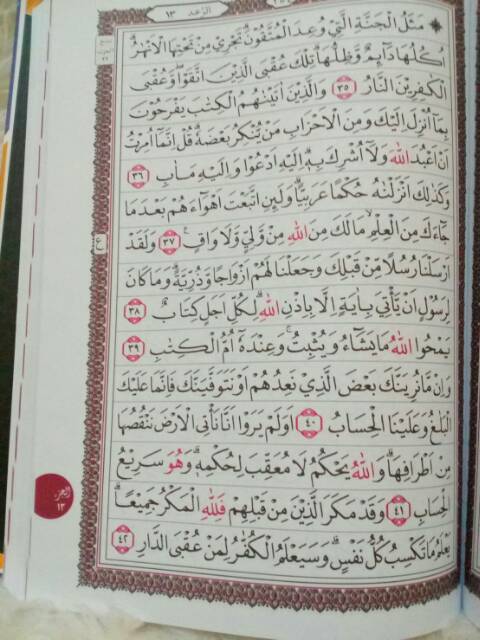 الرّعد ١٣
مَثَلُ الْجَنَّةِ الَّتِيْ وُعِدَ الْمُتَّقُوْنَۗ تَجْرِيْ مِنْ تَحْتِهَا الْاَنْهٰرُۗ
اُكُلُهَا دَاۤىِٕمٌ وَّظِلُّهَاۗ تِلْكَ عُقْبَى الَّذِيْنَ اتَّقَوْا ۖوَّعُقْبَى
الْكٰفِرِيْنَ النَّارُ ٣٥ وَالَّذِيْنَ اٰتَيْنٰهُمُ الْكِتٰبَ يَفْرَحُوْنَ
بِمَآ اُنْزِلَ اِلَيْكَ وَمِنَ الْاَحْزَابِ مَنْ يُّنْكِرُ بَعْضَهٗ ۗ قُلْ اِنَّمَآ اُمِرْتُ
اَنْ اَعْبُدَ اللّٰهَ وَلَآ اُشْرِكَ بِهٖ ۗاِلَيْهِ اَدْعُوْا وَاِلَيْهِ مَاٰبِ ٣٦
وَكَذٰلِكَ اَنْزَلْنٰهُ حُكْمًا عَرَبِيًّاۗ وَلَىِٕنِ اتَّبَعْتَ اَهْوَاۤءَهُمْ بَعْدَمَا
جَاۤءَكَ مِنَ الْعِلْمِۙ مَا لَكَ مِنَ اللّٰهِ مِنْ وَّلِيٍّ وَّلَا وَاقٍ ࣖ ٣٧ وَلَقَدْ
اَرْسَلْنَا رُسُلًا مِّنْ قَبْلِكَ وَجَعَلْنَا لَهُمْ اَزْوَاجًا وَّذُرِّيَّةً ۗوَمَا كَانَ
لِرَسُوْلٍ اَنْ يَّأْتِيَ بِاٰيَةٍ اِلَّا بِاِذْنِ اللّٰهِ ۗلِكُلِّ اَجَلٍ كِتَابٌ ٣٨
يَمْحُوا اللّٰهُ مَا يَشَاۤءُ وَيُثْبِتُ ۚوَعِنْدَهٗٓ اُمُّ الْكِتٰبِ ٣٩
وَاِنْ مَّا نُرِيَنَّكَ بَعْضَ الَّذِيْ نَعِدُهُمْ اَوْ نَتَوَفَّيَنَّكَ فَاِنَّمَا عَلَيْكَ
الْبَلٰغُ وَعَلَيْنَا الْحِسَابُ ٤٠ اَوَلَمْ يَرَوْا اَنَّا نَأْتِى الْاَرْضَ نَنْقُصُهَا
مِنْ اَطْرَافِهَاۗ وَاللّٰهُ يَحْكُمُ لَا مُعَقِّبَ لِحُكْمِهٖۗ وَهُوَ سَرِيْعُ
الْحِسَابِ ٤١ وَقَدْ مَكَرَ الَّذِيْنَ مِنْ قَبْلِهِمْ فَلِلّٰهِ الْمَكْرُ جَمِيْعًاۗ
يَعْلَمُ مَا تَكْسِبُ كُلُّ نَفْسٍۗ وَسَيَعْلَمُ الْكُفّٰرُ لِمَنْ عُقْبَى الدَّارِ ٤٢
ع
الجزء
١٣